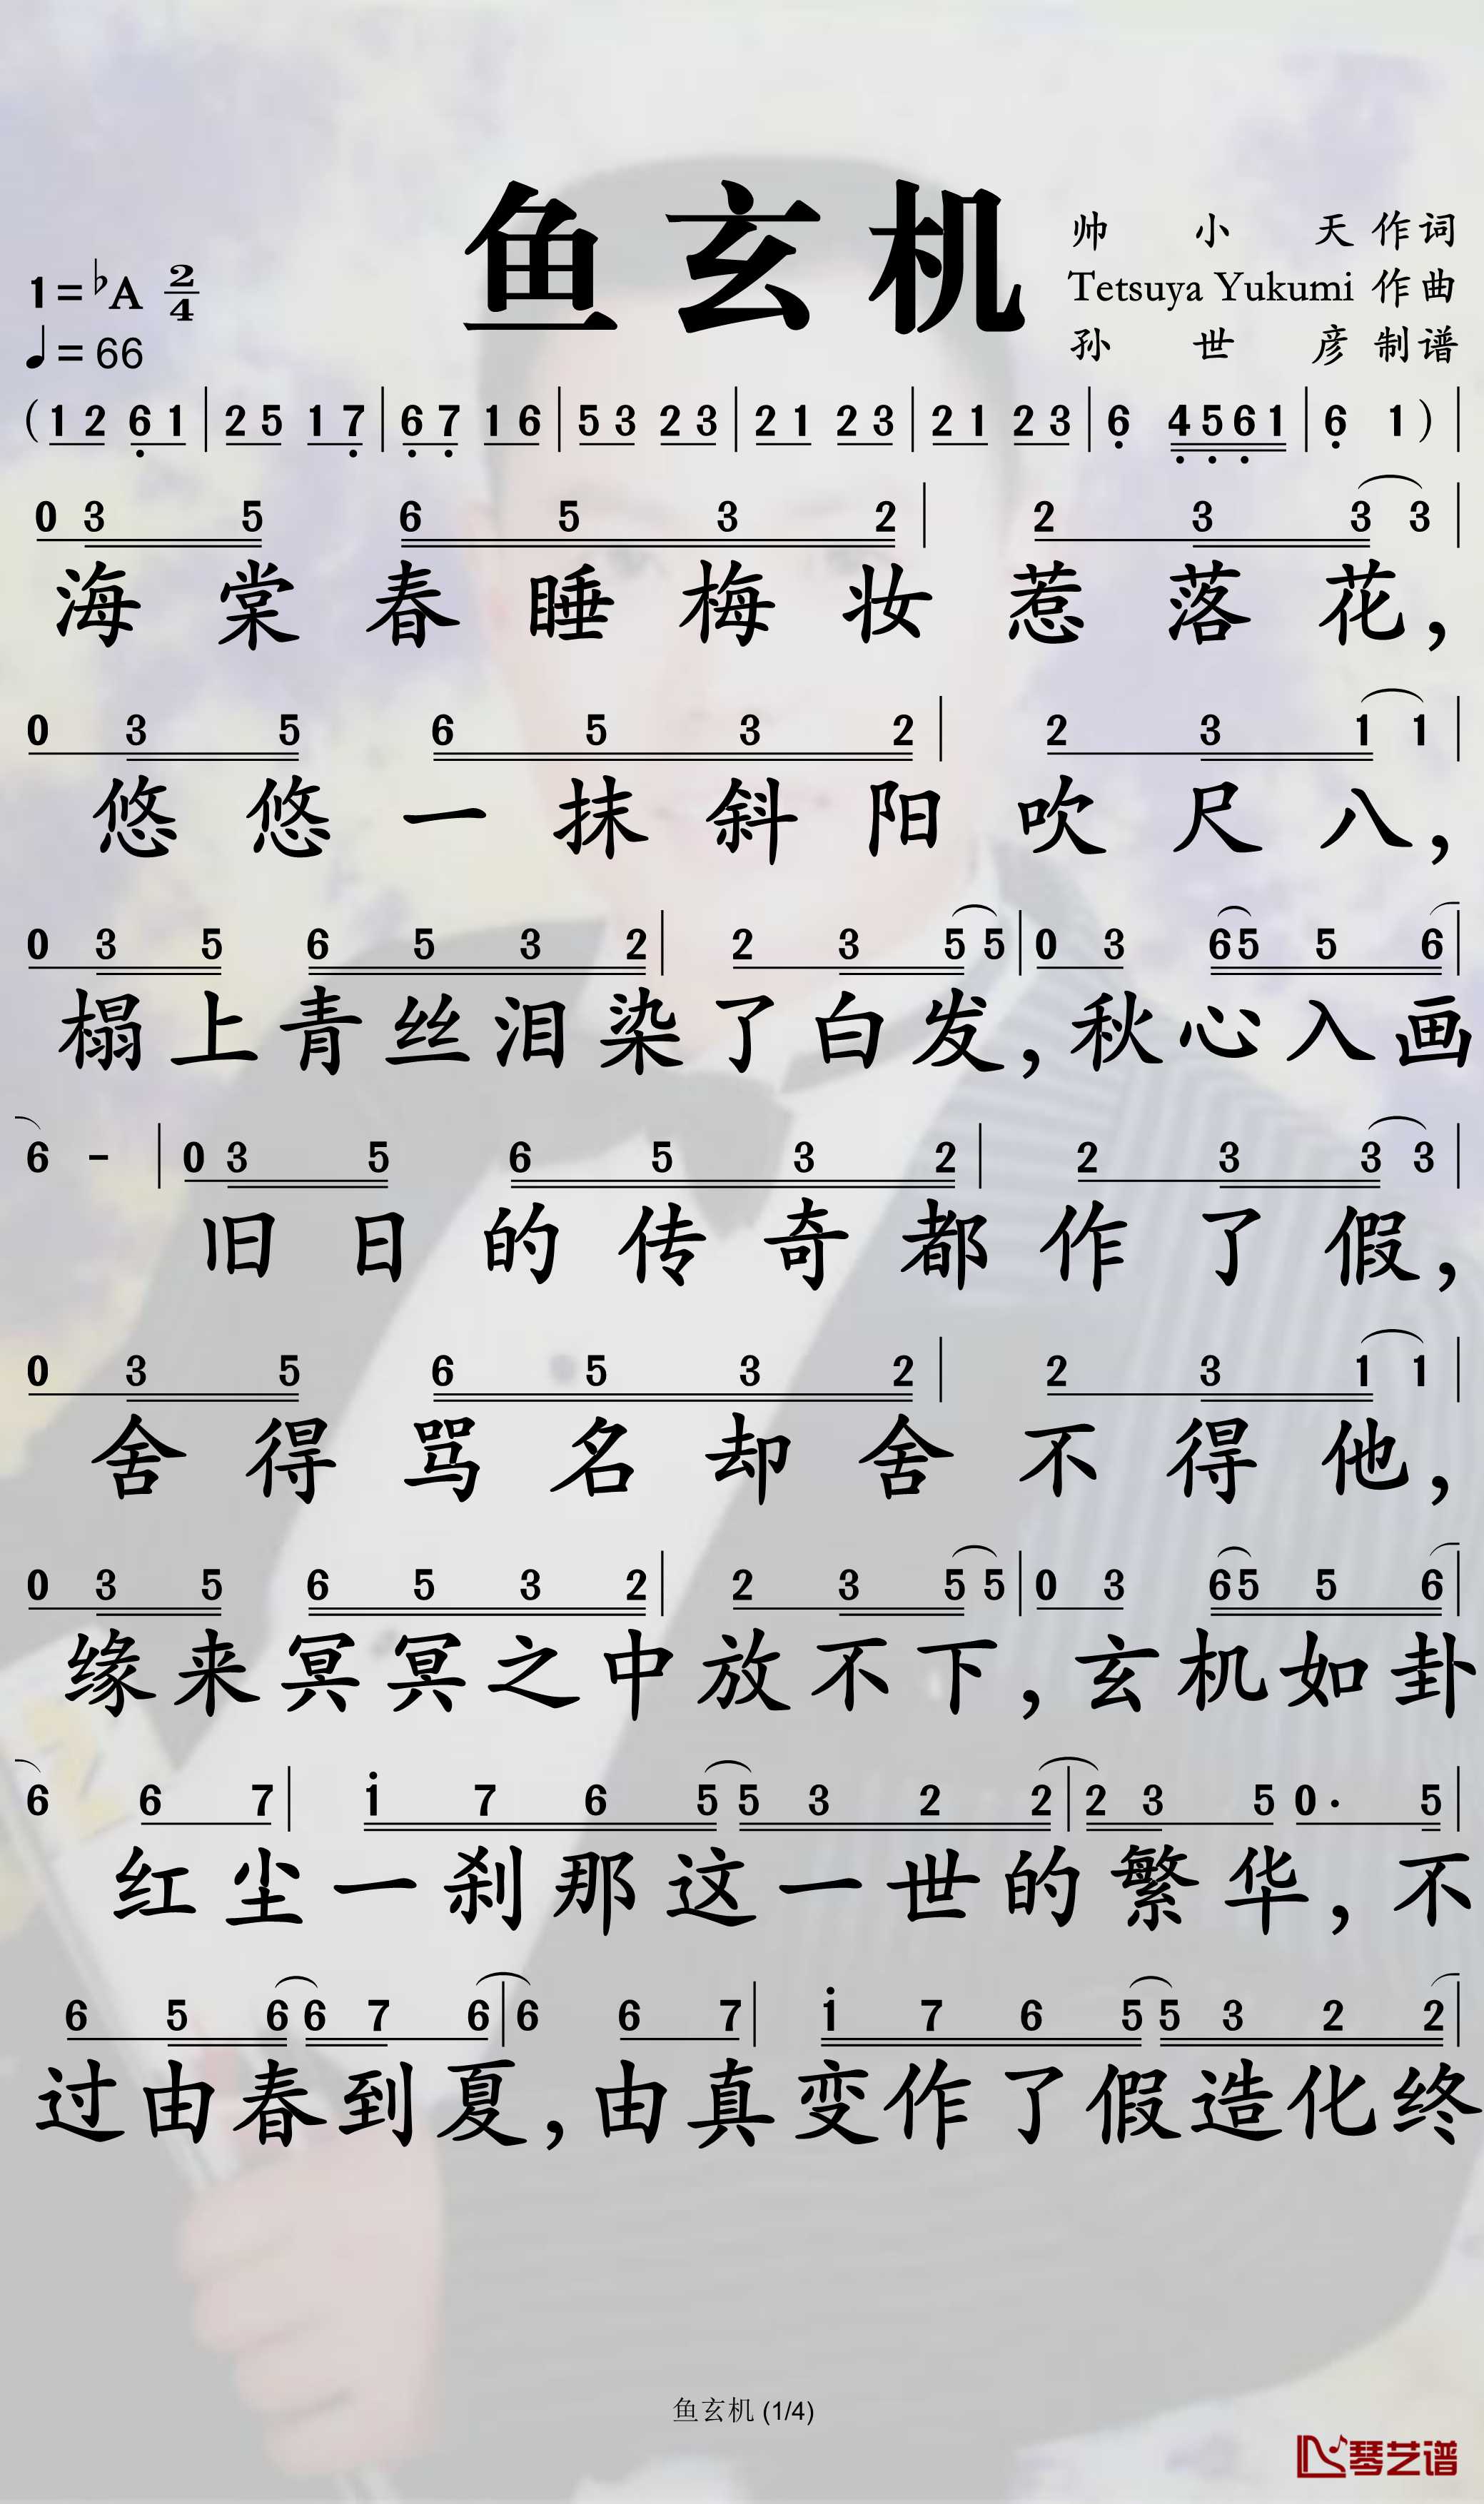 鱼玄机
帅小天作词
1=♭A 2/4
Tetsuya Yukumi 作曲
♩=66
孙世彦制谱
(1 2 6̣ 1 | 2 5 1 7̣ | 6̣ 7̣ 1 6 | 5 3 2 3 | 2 1 2 3 | 2 1 2 3 | 6̣ 4̣ 5̣ 6̣ 1 | 6̣ 1) |
0 3 5 6 5 3 2 | 2 3 3 3 |
海棠春睡梅妆惹落花，
0 3 5 6 5 3 2 | 2 3 1 1 |
悠悠一抹斜阳吹尺八，
0 3 5 6 5 3 2 | 2 3 5 5 | 0 3 6 5 5 6 |
榻上青丝泪染了白发，秋心入画
6 - | 0 3 5 6 5 3 2 | 2 3 3 3 |
旧日的传奇都作了假，
0 3 5 6 5 3 2 | 2 3 1 1 |
舍得骂名却舍不得他，
0 3 5 6 5 3 2 | 2 3 5 5 | 0 3 6 5 5 6 |
缘来冥冥之中放不下，玄机如卦
6 6 7 | i 7 6 5 5 3 2 2 | 2 3 5 0. 5 |
红尘一刹那这一世的繁华，不
6 5 6 6 7 6 | 6 6 7 | i 7 6 5 5 3 2 2 |
过由春到夏，由真变作了假造化终
鱼玄机 (1/4)
琴艺谱